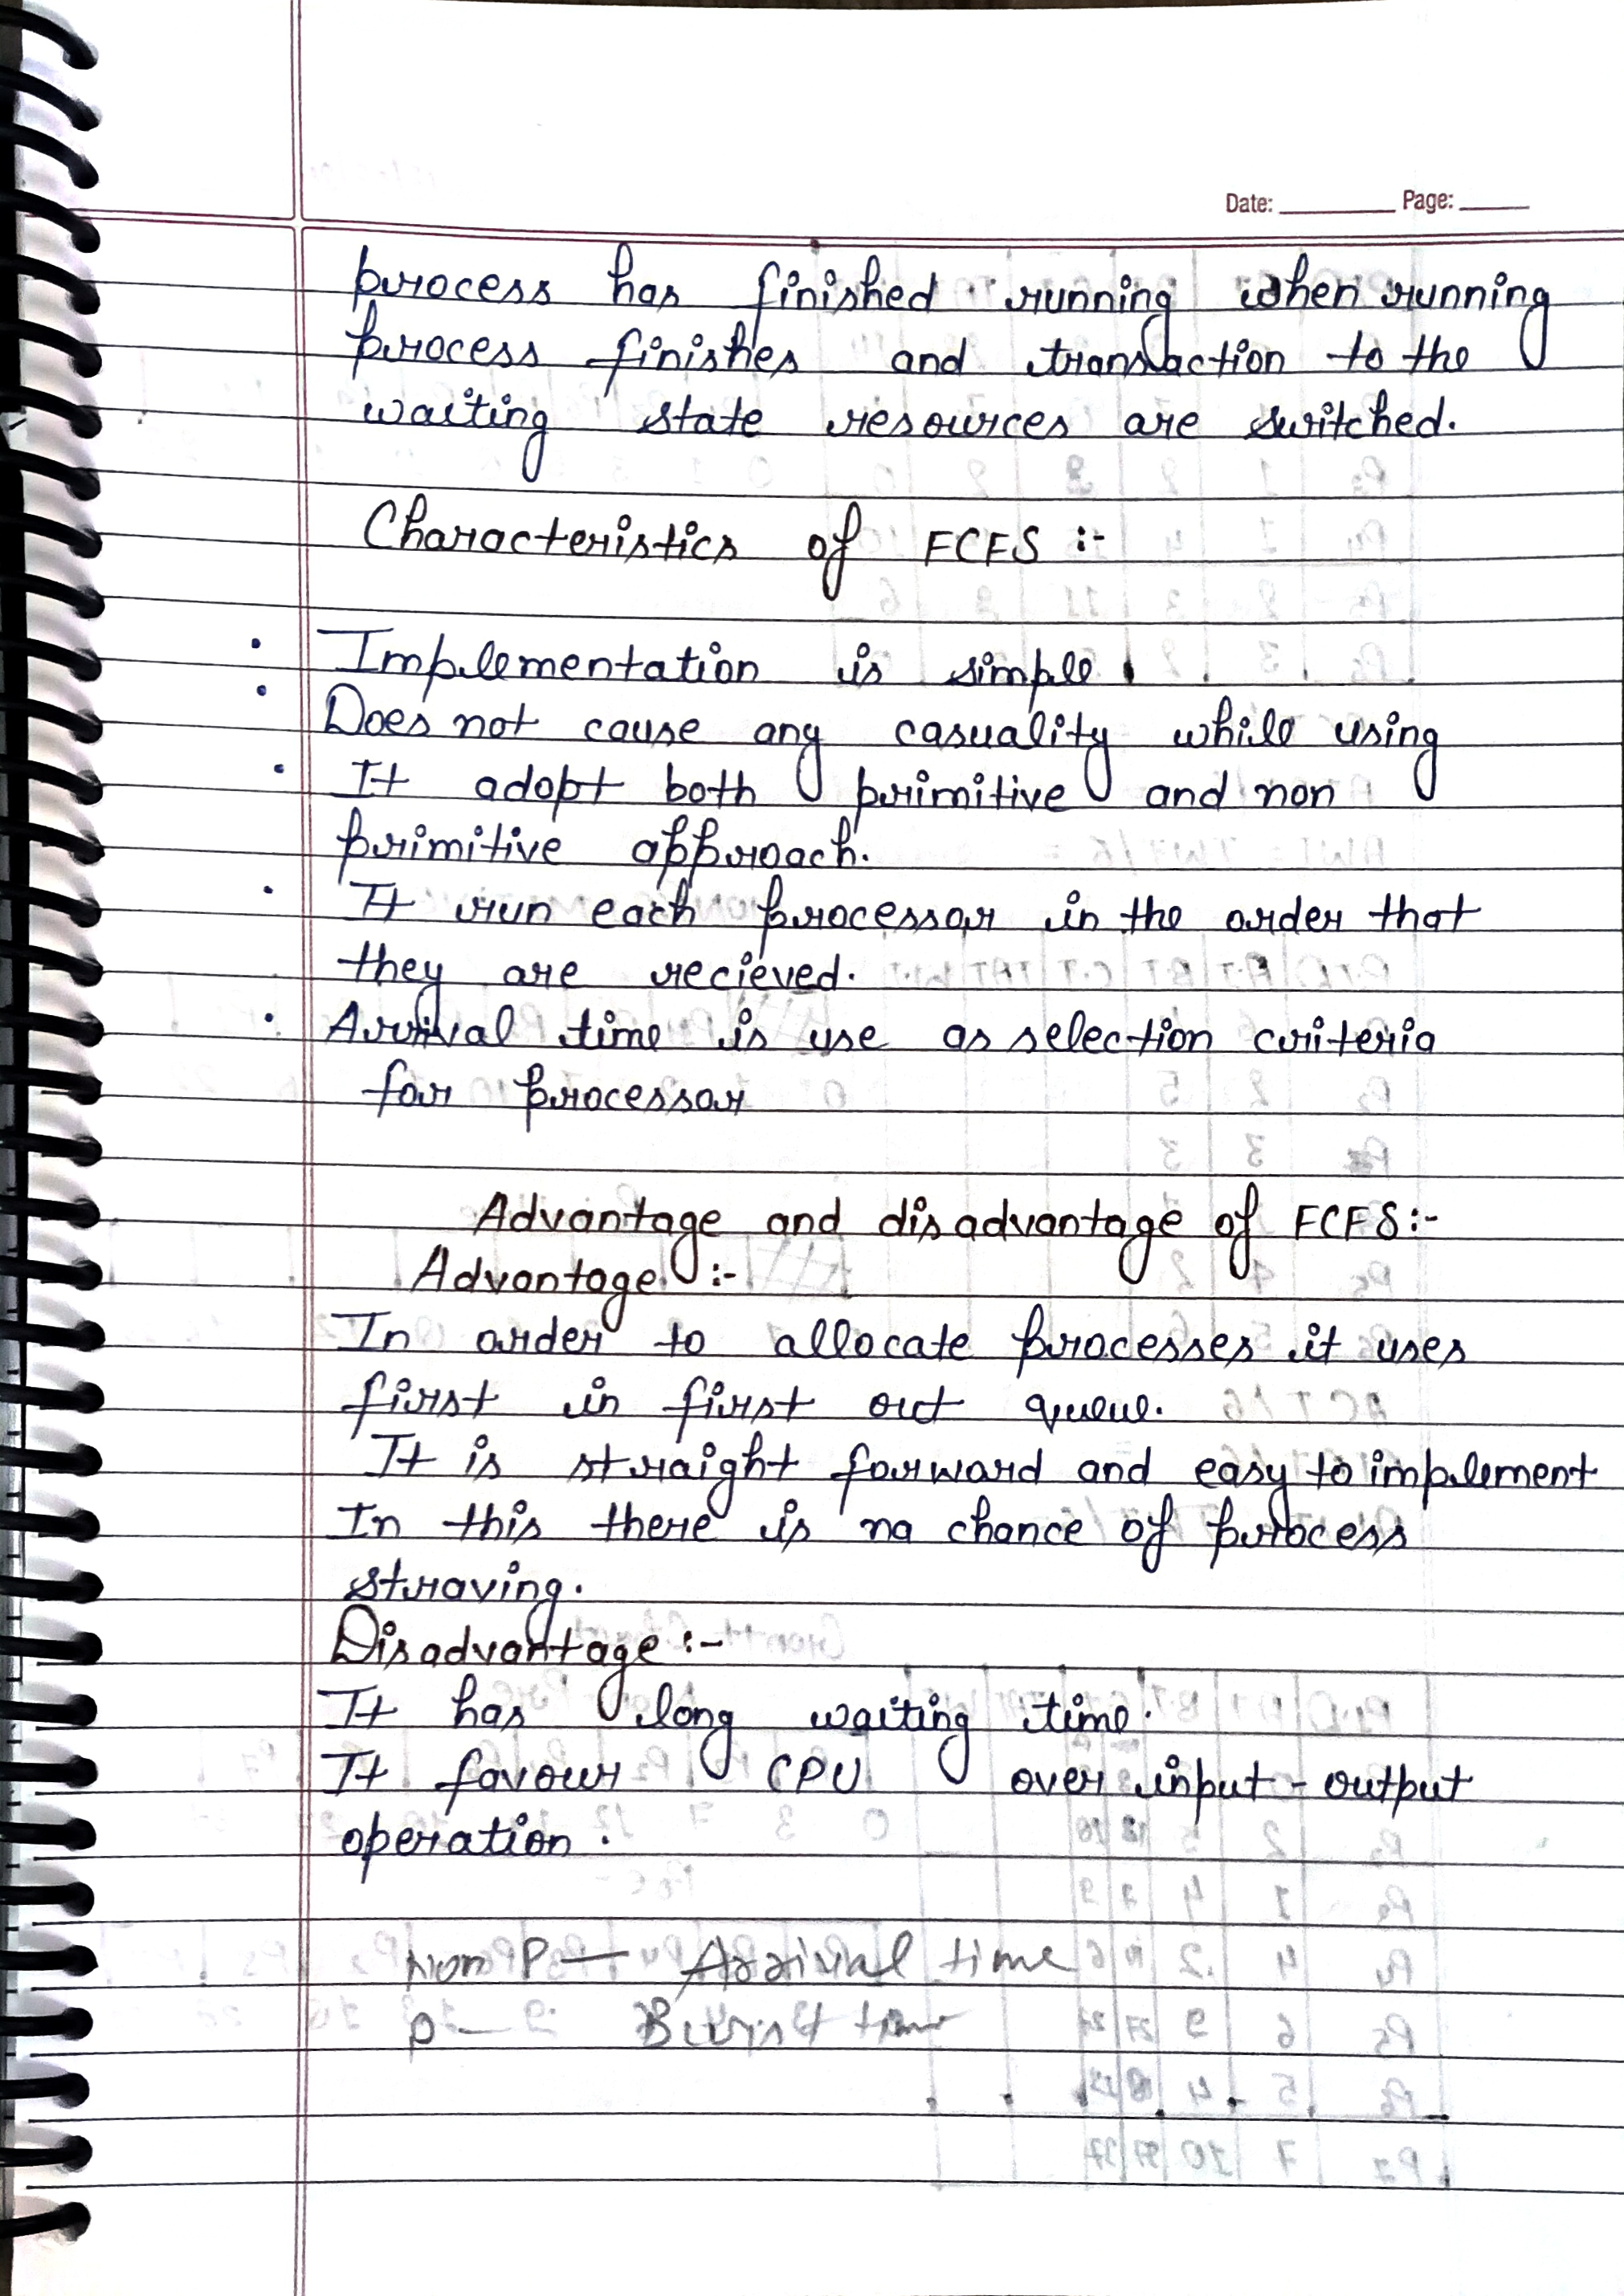 Date: Page:
process has finished running when running
process finishes and transaction to the
waiting state resources are switched.
Characteristics of FCFS :-
· Implementation is simple.
· Does not cause any casuality while using
· It adopt both primitive and non
primitive approach.
· It run each processor in the order that
they are recieved.
· Arrival time is use as selection criteria
for processor
Advantage and disadvantage of FCFS:-
Advantage :-
In order to allocate processes it uses
first in first out queue.
It is straight forward and easy to implement
In this there is no chance of process
straving.
Disadvantage :-
It has long waiting time.
It favour CPU over input - output
operation.
Non P — Arrival time
P — Burst time